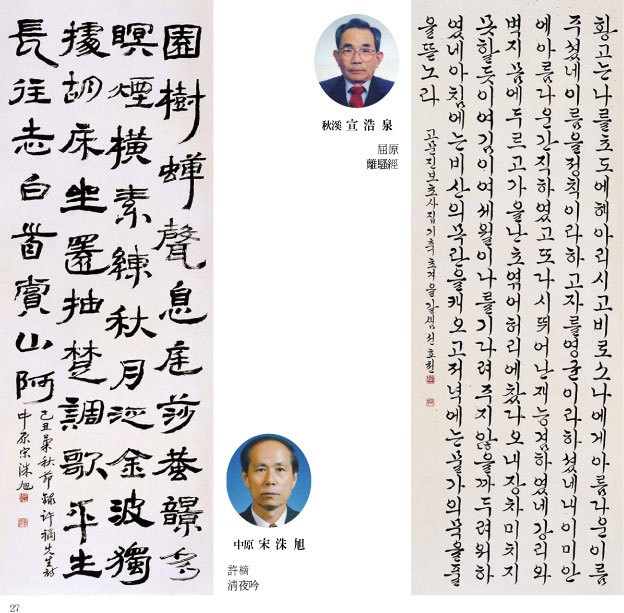 황고는나를초도에헤아리시고비로소나에게아름다운이름
주셨네이름을정칙이라하고자를영균이라하셨네내이미안
에아름다운간직하였고또다시뛰어난재능겸하였네강리와
벽지몸에두르고가을난초엮어허리에찼다오내장차미치지
못할듯이여김이여세월이나를기다려주지않을까두려워하
였네아침에는비산의목란을캐오고저녁에는물가의묵을풀
을뜯노라
고문진보초사집기축초겨울갈샘선호천
秋溪 宣浩泉
屈原
離騷經
園樹蟬聲息庭莎蛬韻多
暝煙橫素練秋月泛金波獨
據胡床坐還抽楚調歌平生
長往志白首賓山阿
己丑菊秋節錄許樀先生詩
中原宋洙旭
中原 宋洙旭
許樀
淸夜吟
27